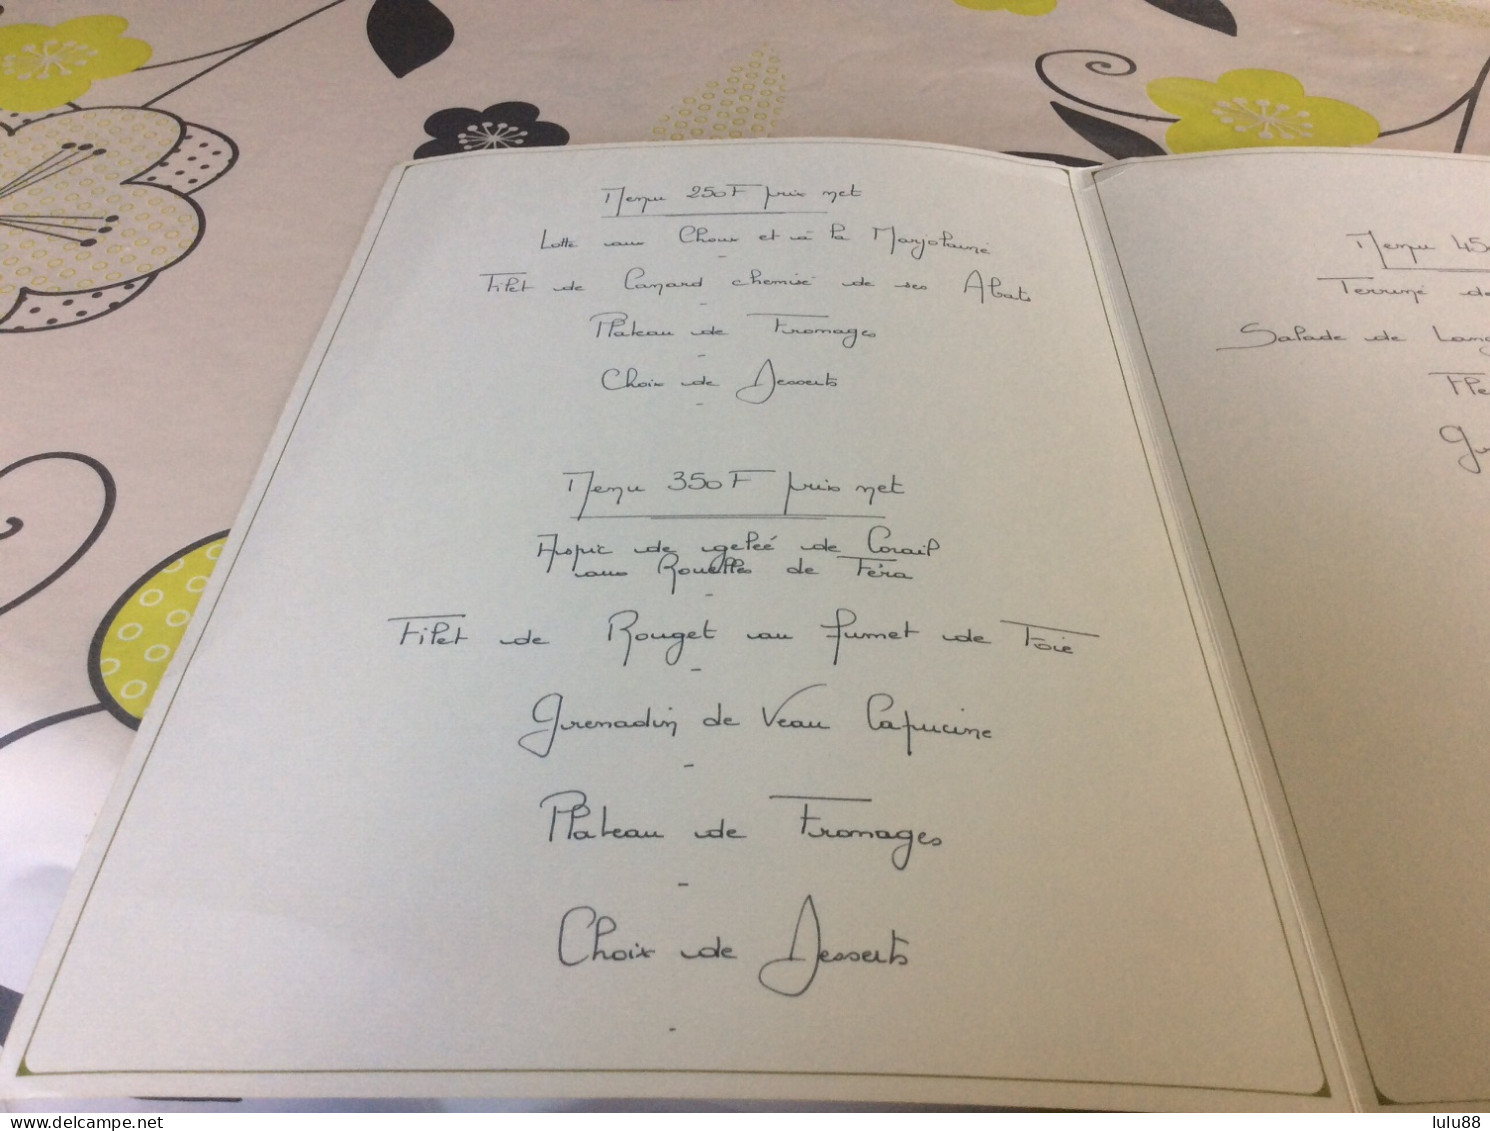 Menu 250F prix net
Lotte aux Choux et à la Marjolaine
Filet de Canard chemisé de ses Abats
Plateau de Fromages
Choix de Desserts
Menu 350F prix net
Aspic de gelée de Corail
aux Rouelles de Féra
Filet de Rouget au fumet de Foie
Grenadin de Veau Capucine
Plateau de Fromages
Choix de Desserts
Menu 45
Terrine de
Salade de Lang
File
Gr
www.delcampe.net
lulu88